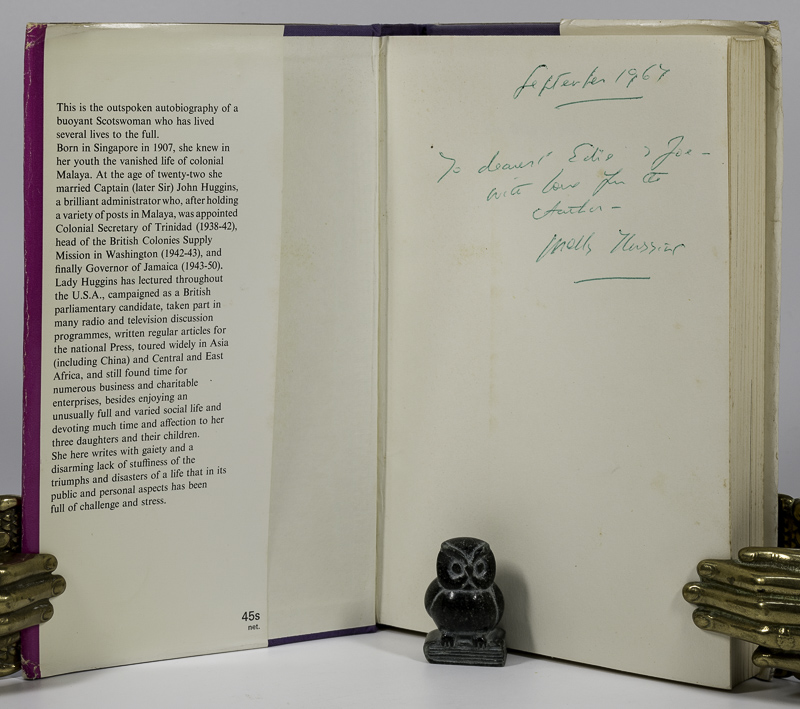 This is the outspoken autobiography of a
buoyant Scotswoman who has lived
several lives to the full.
Born in Singapore in 1907, she knew in
her youth the vanished life of colonial
Malaya. At the age of twenty-two she
married Captain (later Sir) John Huggins,
a brilliant administrator who, after holding
a variety of posts in Malaya, was appointed
Colonial Secretary of Trinidad (1938-42),
head of the British Colonies Supply
Mission in Washington (1942-43), and
finally Governor of Jamaica (1943-50).
Lady Huggins has lectured throughout
the U.S.A., campaigned as a British
parliamentary candidate, taken part in
many radio and television discussion
programmes, written regular articles for
the national Press, toured widely in Asia
(including China) and Central and East
Africa, and still found time for
numerous business and charitable
enterprises, besides enjoying an
unusually full and varied social life and
devoting much time and affection to her
three daughters and their children.
She here writes with gaiety and a
disarming lack of stuffiness of the
triumphs and disasters of a life that in its
public and personal aspects has been
full of challenge and stress.
45s
net.
September 1967
To dearest Edie & Joe -
with love from the
Author -
Molly Huggins